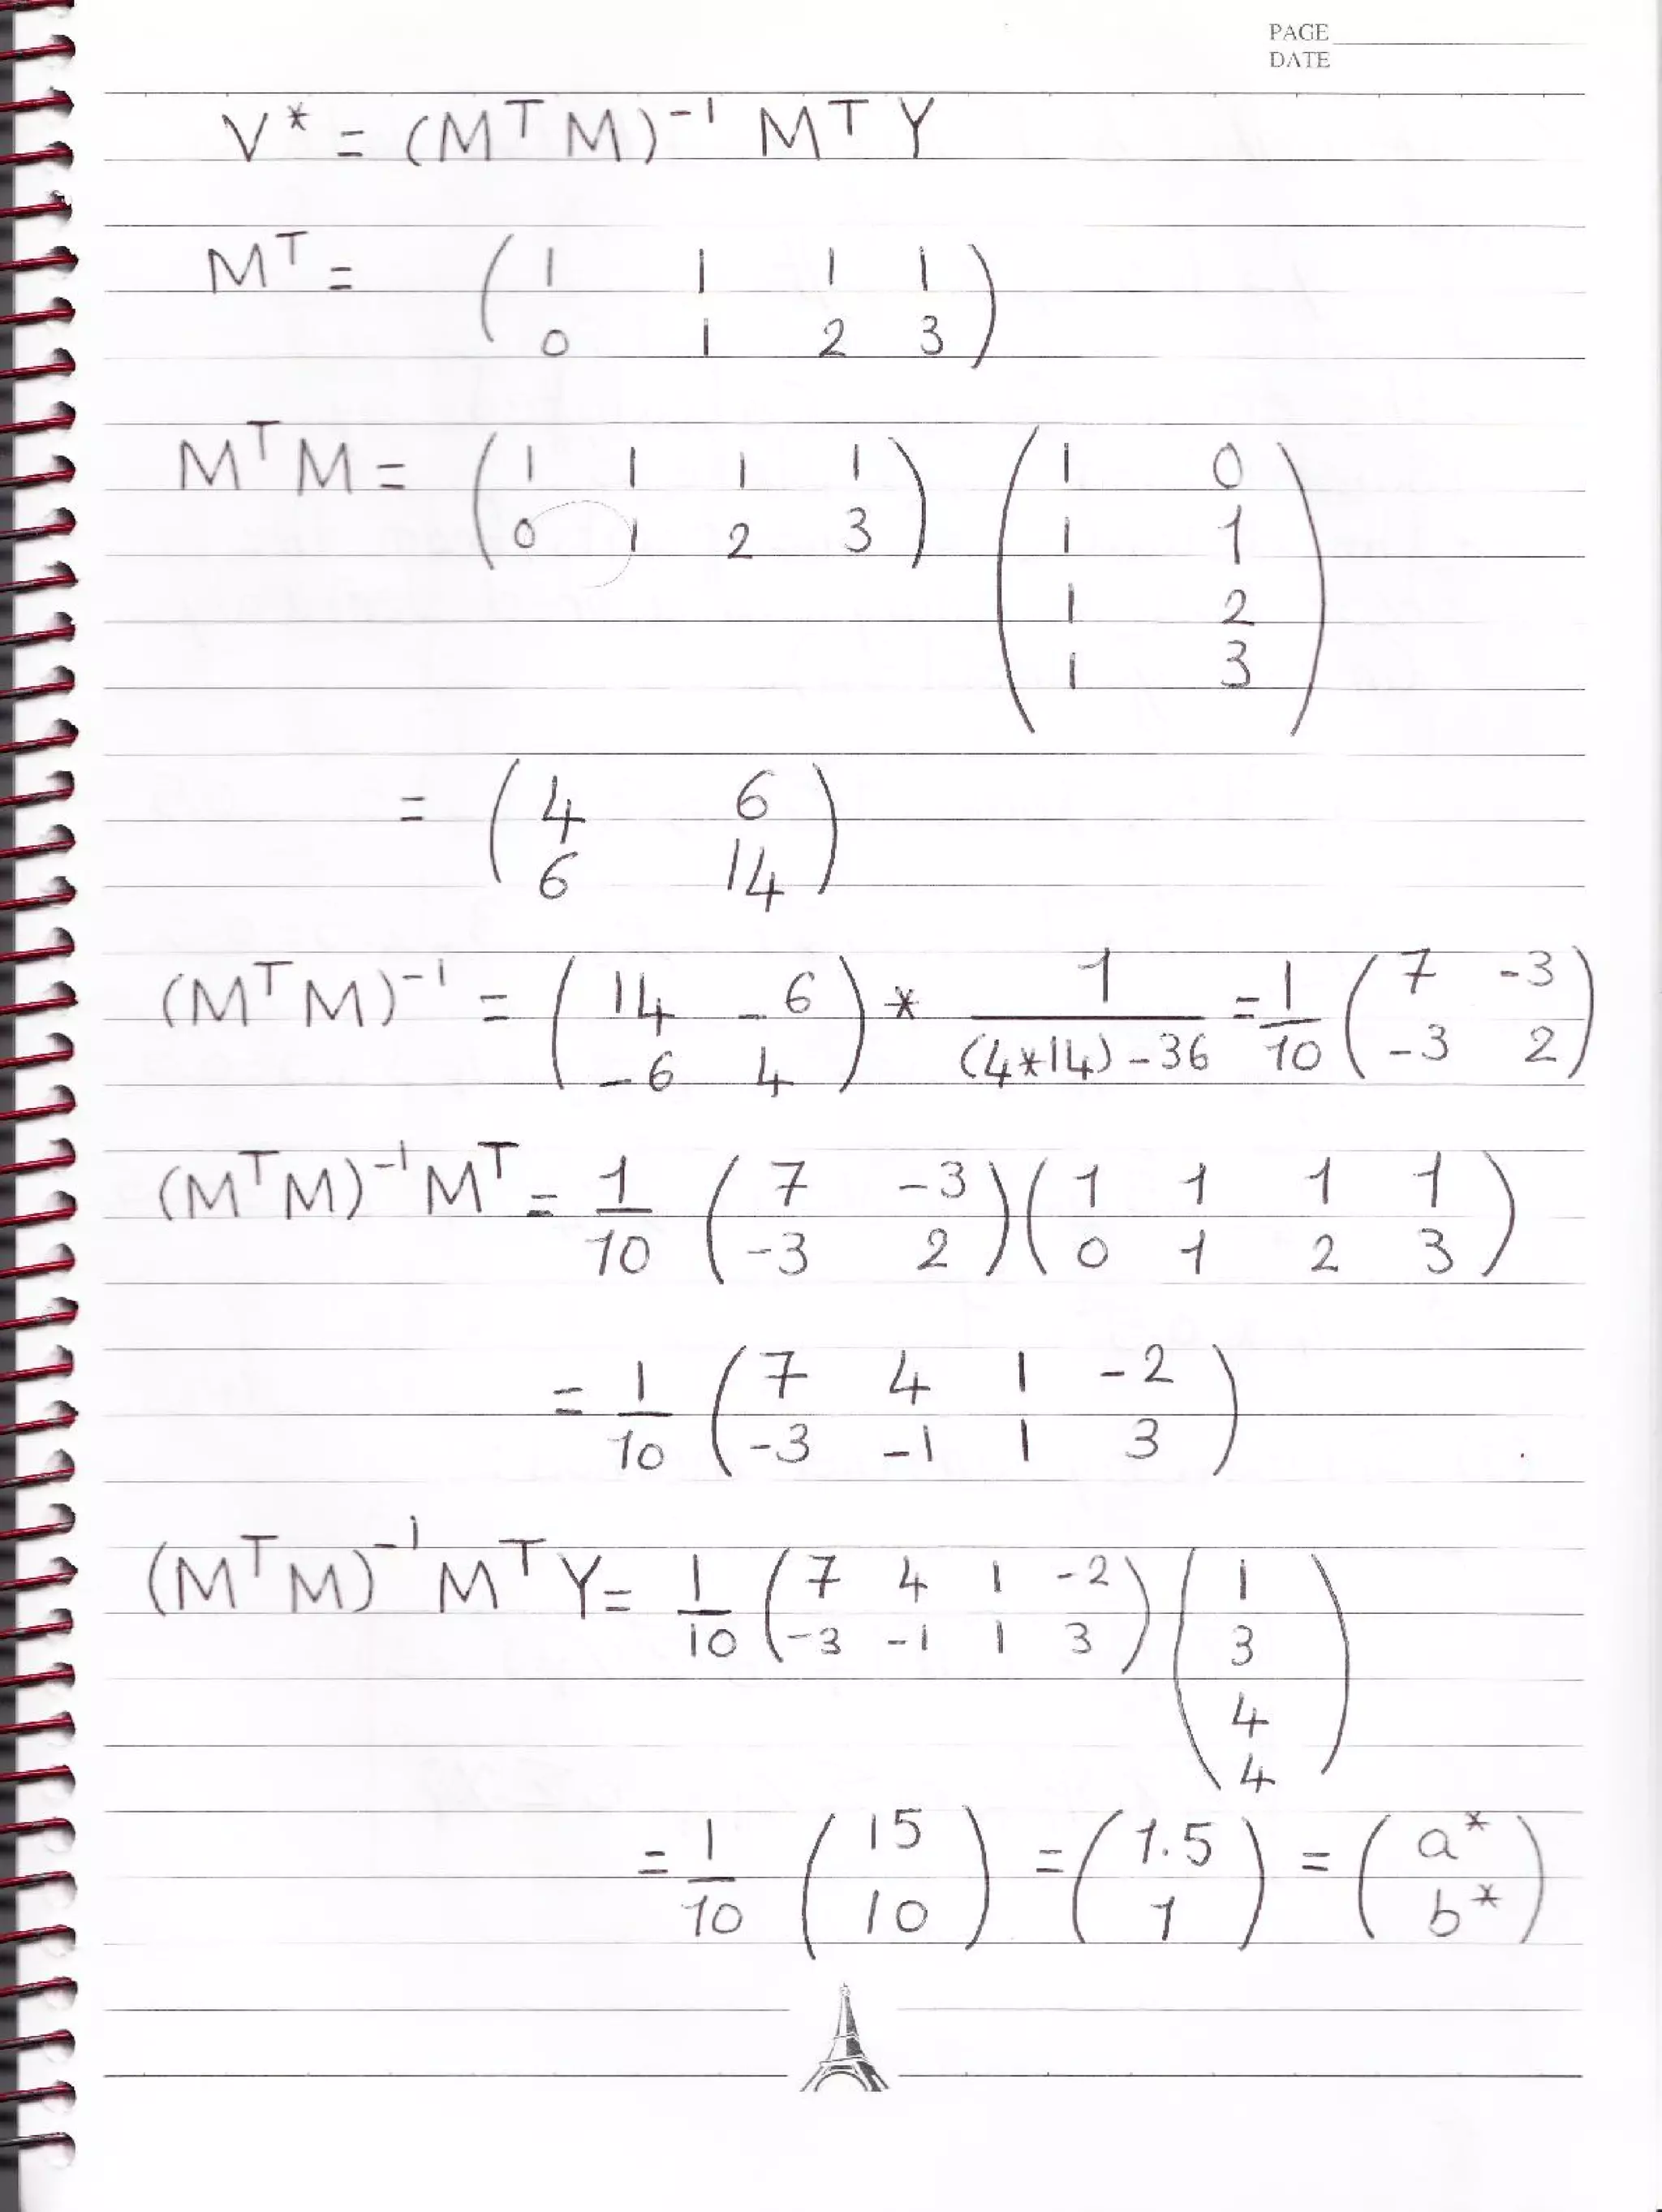 PAGE
DATE
V* = (M^T M)^-1 M^T Y
M^T = ( 1 1 1 1 )
( 0 1 2 3 )
M^T M = ( 1 1 1 1 ) ( 1 0 )
( 0 1 2 3 ) ( 1 1 )
( 1 2 )
( 1 3 )
= ( 4 6 )
( 6 14 )
(M^T M)^-1 = ( 14 -6 ) * 1/((4*14)-36) = 1/10 ( 7 -3 )
( -6 4 ) ( -3 2 )
(M^T M)^-1 M^T = 1/10 ( 7 -3 ) ( 1 1 1 1 )
( -3 2 ) ( 0 1 2 3 )
= 1/10 ( 7 4 1 -2 )
( -3 -1 1 3 )
(M^T M)^-1 M^T Y = 1/10 ( 7 4 1 -2 ) ( 1 )
( -3 -1 1 3 ) ( 3 )
( 4 )
( 4 )
= 1/10 ( 15 ) = ( 1.5 ) = ( a* )
( 10 ) ( 1 ) ( b* )